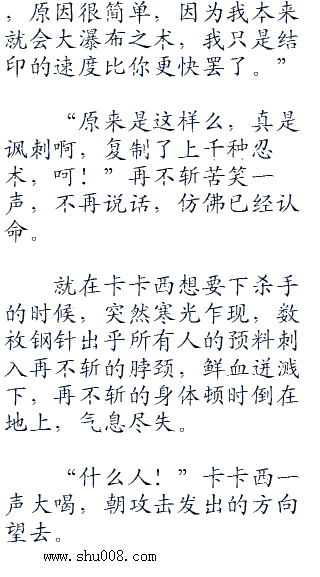 ，原因很简单，因为我本来
就会大瀑布之术，我只是结
印的速度比你更快罢了。”
“原来是这样么，真是
讽刺啊，复制了上千种忍
术，呵！”再不斩苦笑一
声，不再说话，仿佛已经认
命。
就在卡卡西想要下杀手
的时候，突然寒光乍现，数
枚钢针出乎所有人的预料刺
入再不斩的脖颈，鲜血迸溅
下，再不斩的身体顿时倒在
地上，气息尽失。
“什么人！”卡卡西一
声大喝，朝攻击发出的方向
望去。
www.shu008.com